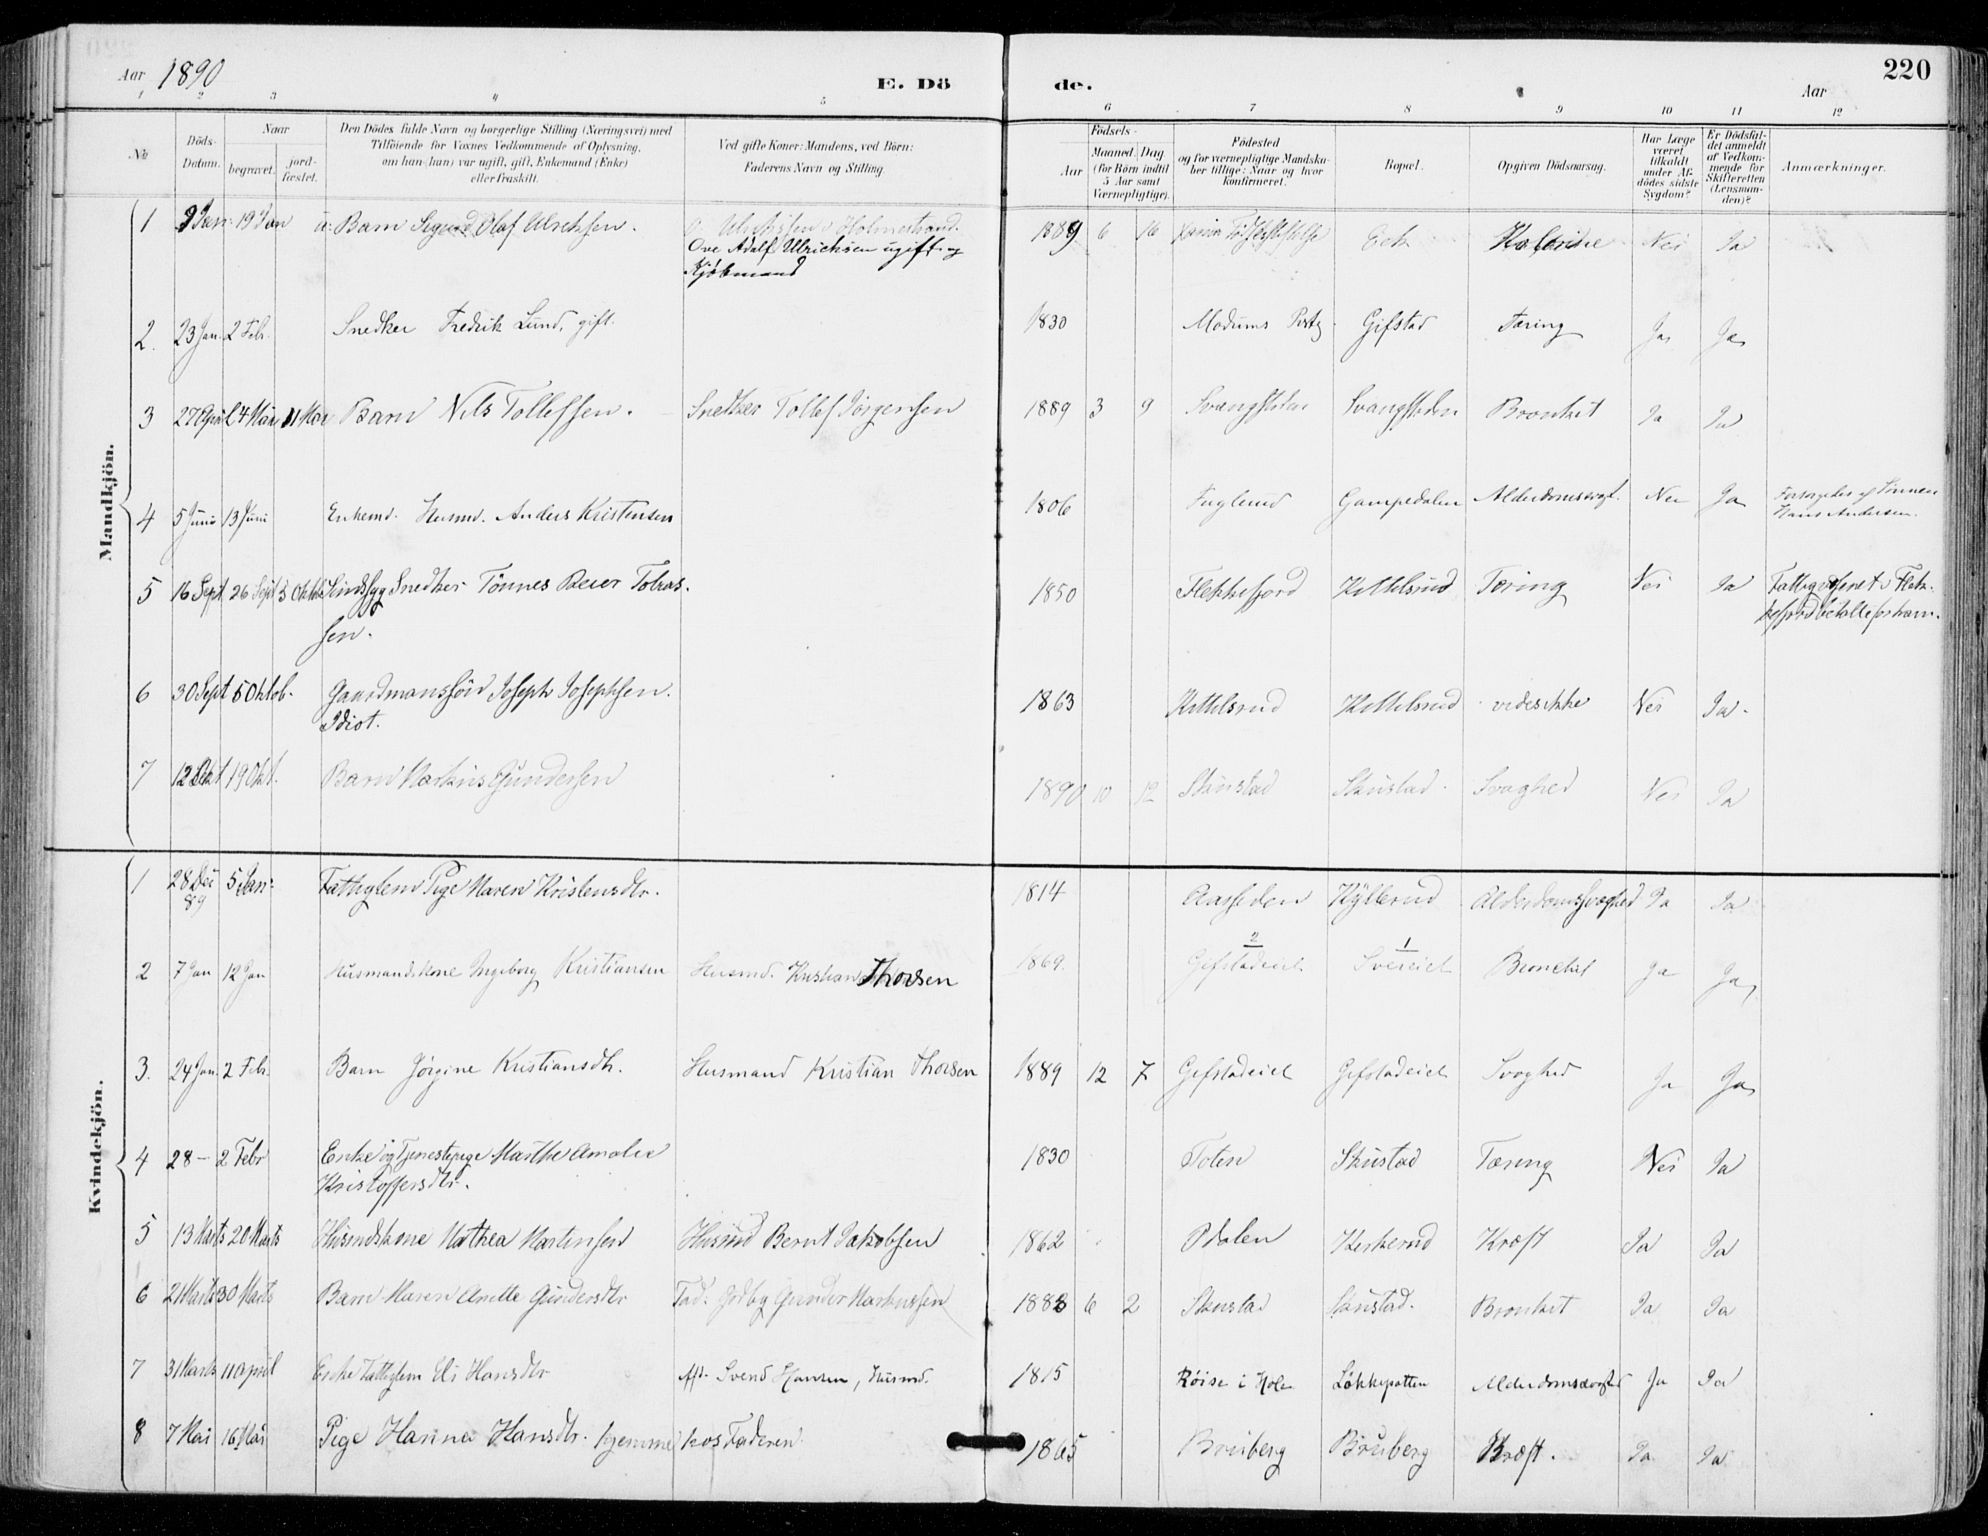 Aar 1890 E. Dö de. Aar 220
1 2 3 4 5 6 7 8 9 10 11 12
№ Döds-Datum. Naar begravet. jord-fæstet. Den Dödes fulde Navn og borgerlige Stilling (Næringsvei) med Tilföiende for Voxnes Vedkommende af Oplysning, om han (hun) var ugift, gift, Enkemand (Enke) eller fraskilt. Ved gifte Koner: Mandens, ved Börn: Faderens Navn og Stilling Födsels- Aar Maaned. Dag (for Börn indtil 5 Aar samt Værnepligtige). Födested og for værnepligtige Mandskaber tillige: Naar og hvor konfirmeret. Bopæl. Opgiven Dödsaarsag. Har Læge været tilkaldt under Afdödes sidste Sygdom? Er Dödsfaldet anmeldt af Vedkommende for Skifteretten (Lensmanden)? Anmærkninger.
Mandkjön.
1 9 Jan. 19 Jan u. Barn Sigurd Olaf Ulrichsen. Ulrichsen Holmestrand. 1889 6 16 Eek Nei Ja
Ove Adolf Ullrichsen ugift og
Kjöbmand
2. 23 Jan. 2 Febr. Snedker Fredrik Lund, gift. 1830 Modums Gifstad Tæring Ja Ja
3 27 April 4 Mai 11 Mai Barn Nils Tollefsen. Snedker Tollef Jørgensen 1889 3 9 Svangstaden Svangstaden Bronkit Ja Ja
4 5 Juni 13 Juni Enkemd. Husmd. Anders Kristensen 1806 Fuglerud Gampedalen Alderdomssvagh. Nei Ja Forsørgedes af Sønnen
Hans Andersen.
5 16 Sept 26 Sept 3 Oktob Sindssyg Snedker Tönnes Beier Tobias- 1850 Flekkefjord Kittelsrud Tæring Nei Ja Fattigvæsenet i Flek-
sen. kefjord betalte for ham.
6 30 Sept 5 Oktob. Gaardmanssön Joseph Josephsen. 1863 Kittelsrud Kittelsrud vides ikke Nei Ja.
Idiot.
7 12 Okt 19 Okt. Barn Markus Gundersen 1890 10 12 Skustad Skustad. Svaghed Nei Ja
Kvindekjön.
1 28 Dec 5 Jan. Fattiglem Pige Maren Kristensdtr. 1814 Aaseden Kyllerud Alderdomssvaghed Ja Ja
89
2 7 Jan 12 Jan Husmandskone Ingeborg Kristiansen Husmd. Kristian Thorsen 1869. Gifstadeiet 2 Sveeiet 1 Bronchit Ja Ja
3. 24 Jan. 2 Febr. Barn Jörgine Kristiansdtr. Husmand Kristian Thorsen 1889 12 7 Gifstadeiet Gifstadeiet Svaghed Ja Ja
4 28 — 2 Febr Enke og Tjenestepige Marthe Amalie 1830 Toten Skustad Tæring Nei Ja
Kristoffersdtr.
5 13 Marts 20 Marts Husmdskone Mathea Martinsen Husmd Bernt Jakobsen 1862 Odalen Kiskerud Kræft Ja Ja
6 21 Marts 30 Marts Barn Maren Anette Gundersdtr Fad. Gunder Markussen 1888 6 2 Skustad Skustad. Bronkit Ja Ja
7 31 Marts 11 April Enke Fattiglem Eli Hansdtr Afd. Svend Hansen, Husmd. 1815 Röise i Hole Løkkepotten Alderdomssvaghed Ja Ja
8 7 Mai 16 Mai Pige Hanna Hansdtr. hjemme hos Faderen 1865 Bruberg Bruberg Kræft. Ja Ja